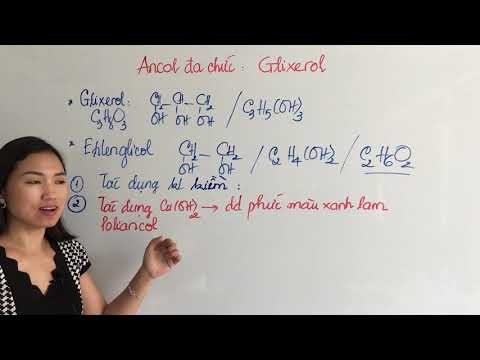 Ancol đa chức : Glixerol
* Glixerol: CH2 – CH – CH2 / C3H5(OH)3
C3H8O3 OH OH OH
* Etilenglicol CH2 – CH2 / C2H4(OH)2 / C2H6O2
OH OH
① Tác dụng kl kiềm :
② Tác dụng Cu(OH)2 → dd phức màu xanh lam
poliancol